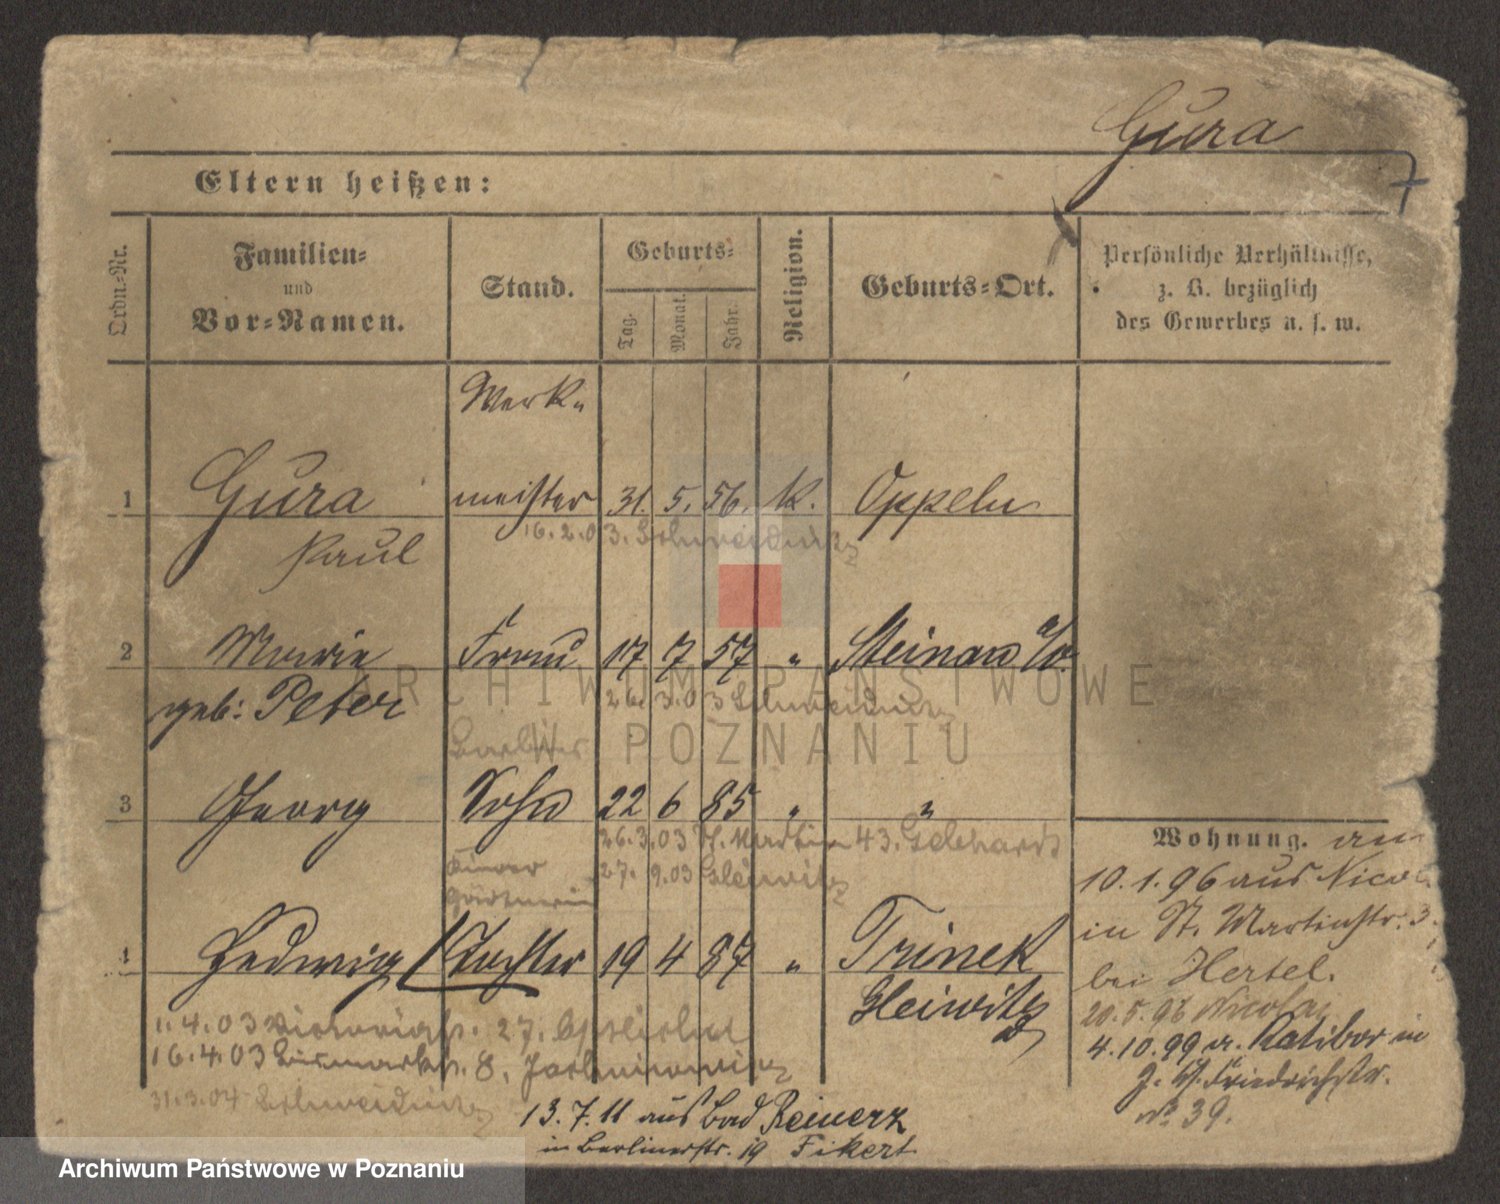 Gura
7
Eltern heißen:
Ordn.-Nr.
Familien-
und
Vor-Namen.
Stand.
Geburts-
Tag.
Monat.
Jahr.
Religion.
Geburts-Ort.
Persönliche Verhältnisse,
z. B. bezüglich
des Gewerbes u. s. w.
Werk-
1 Gura meister 31. 5. 56. K. Oppeln
Paul
16.2.03. Schweidnitz
2 Marie Frau 17 7 57 " Steinau a/O.
geb: Peter
26.3.03 Schweidnitz
3 Georg Sohn 22 6 85 " "
26.3.03 St. Martin 43. Gebhardt
27. 9.03 Gleiwitz
Kinder
gärtnerin
4 Hedwig Tochter 19 4 87 " Trinek
Gleiwitz
1.4.03 Victoriastr. 27.
16.4.03 Bismarckstr. 8.
31.3.04 Schweidnitz
13.7.11 aus Bad Reinerz
in Berlinerstr. 19 Fikert
Wohnung. am
10.1.96 aus Nicolai
in St. Martinstr. 3
bei Hertel.
20.5.96 Nicolai
4.10.99 a. Ratibor in
Friedrichstr.
No 39.
ARCHIWUM PAŃSTWOWE
W POZNANIU
Archiwum Państwowe w Poznaniu